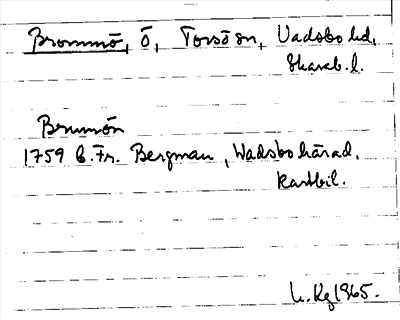 Brommö, ö, Torsö sn, Vadsbo hd,
Skarab. l.
Brumön
1759 C. Fr. Bergman, Wadsbo härad.
kartbil.
Kg 1965.